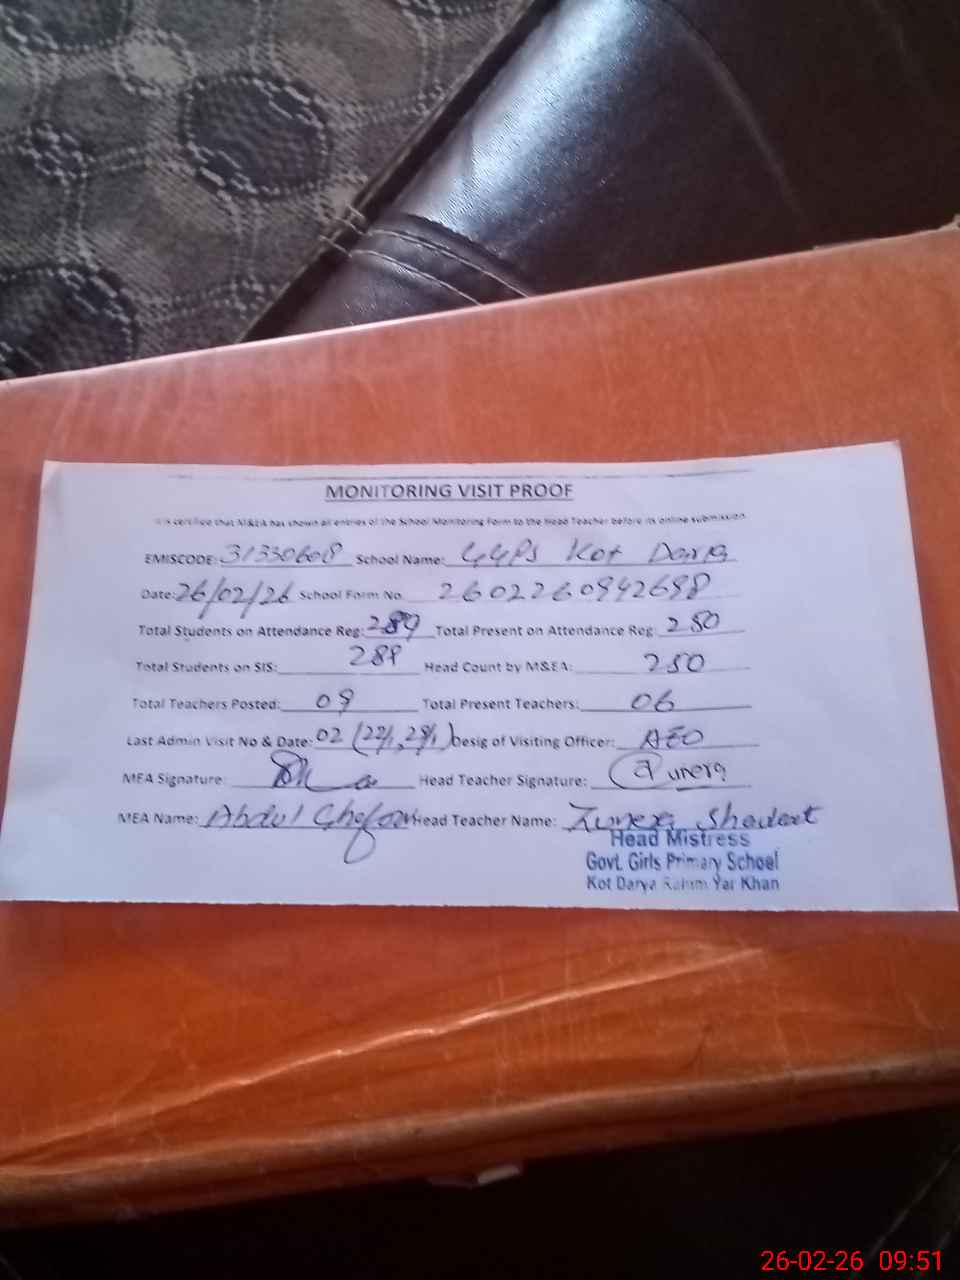 MONITORING VISIT PROOF
It is certified that M&EA has shown all entries of the School Monitoring Form to the Head Teacher before its online submission
EMISCODE: 31330608 School Name: GGPS Kot Darya
Date: 26/02/26 School Form No. 2602260942698
Total Students on Attendance Reg: 289 Total Present on Attendance Reg: 250
Total Students on SIS: 289 Head Count by M&EA: 250
Total Teachers Posted: 09 Total Present Teachers: 06
Last Admin Visit No & Date: 02 Desig of Visiting Officer: AEO
MEA Signature: Head Teacher Signature:
MEA Name: Abdul Ghafoor Head Teacher Name:
Head Mistress
Govt. Girls Primary School
Kot Darya Rahim Yar Khan
26-02-26 09:51